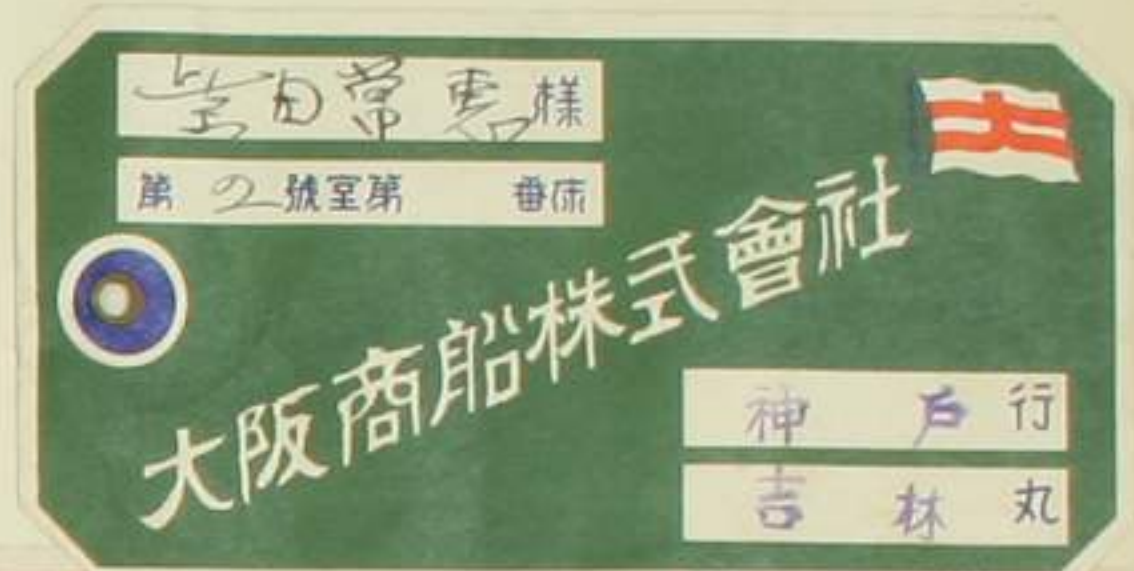 柴田常惠様
第 2 號室第 番床
大阪商船株式會社
神戸行
吉林丸